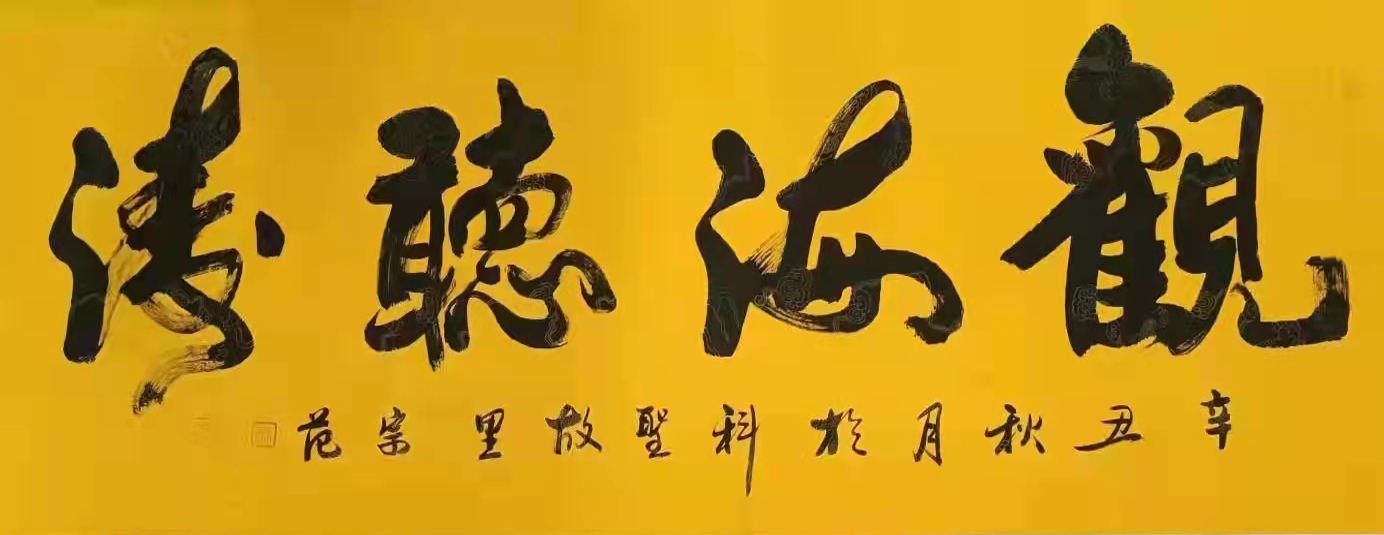 觀海聽濤
辛丑秋月於科聖故里宗范